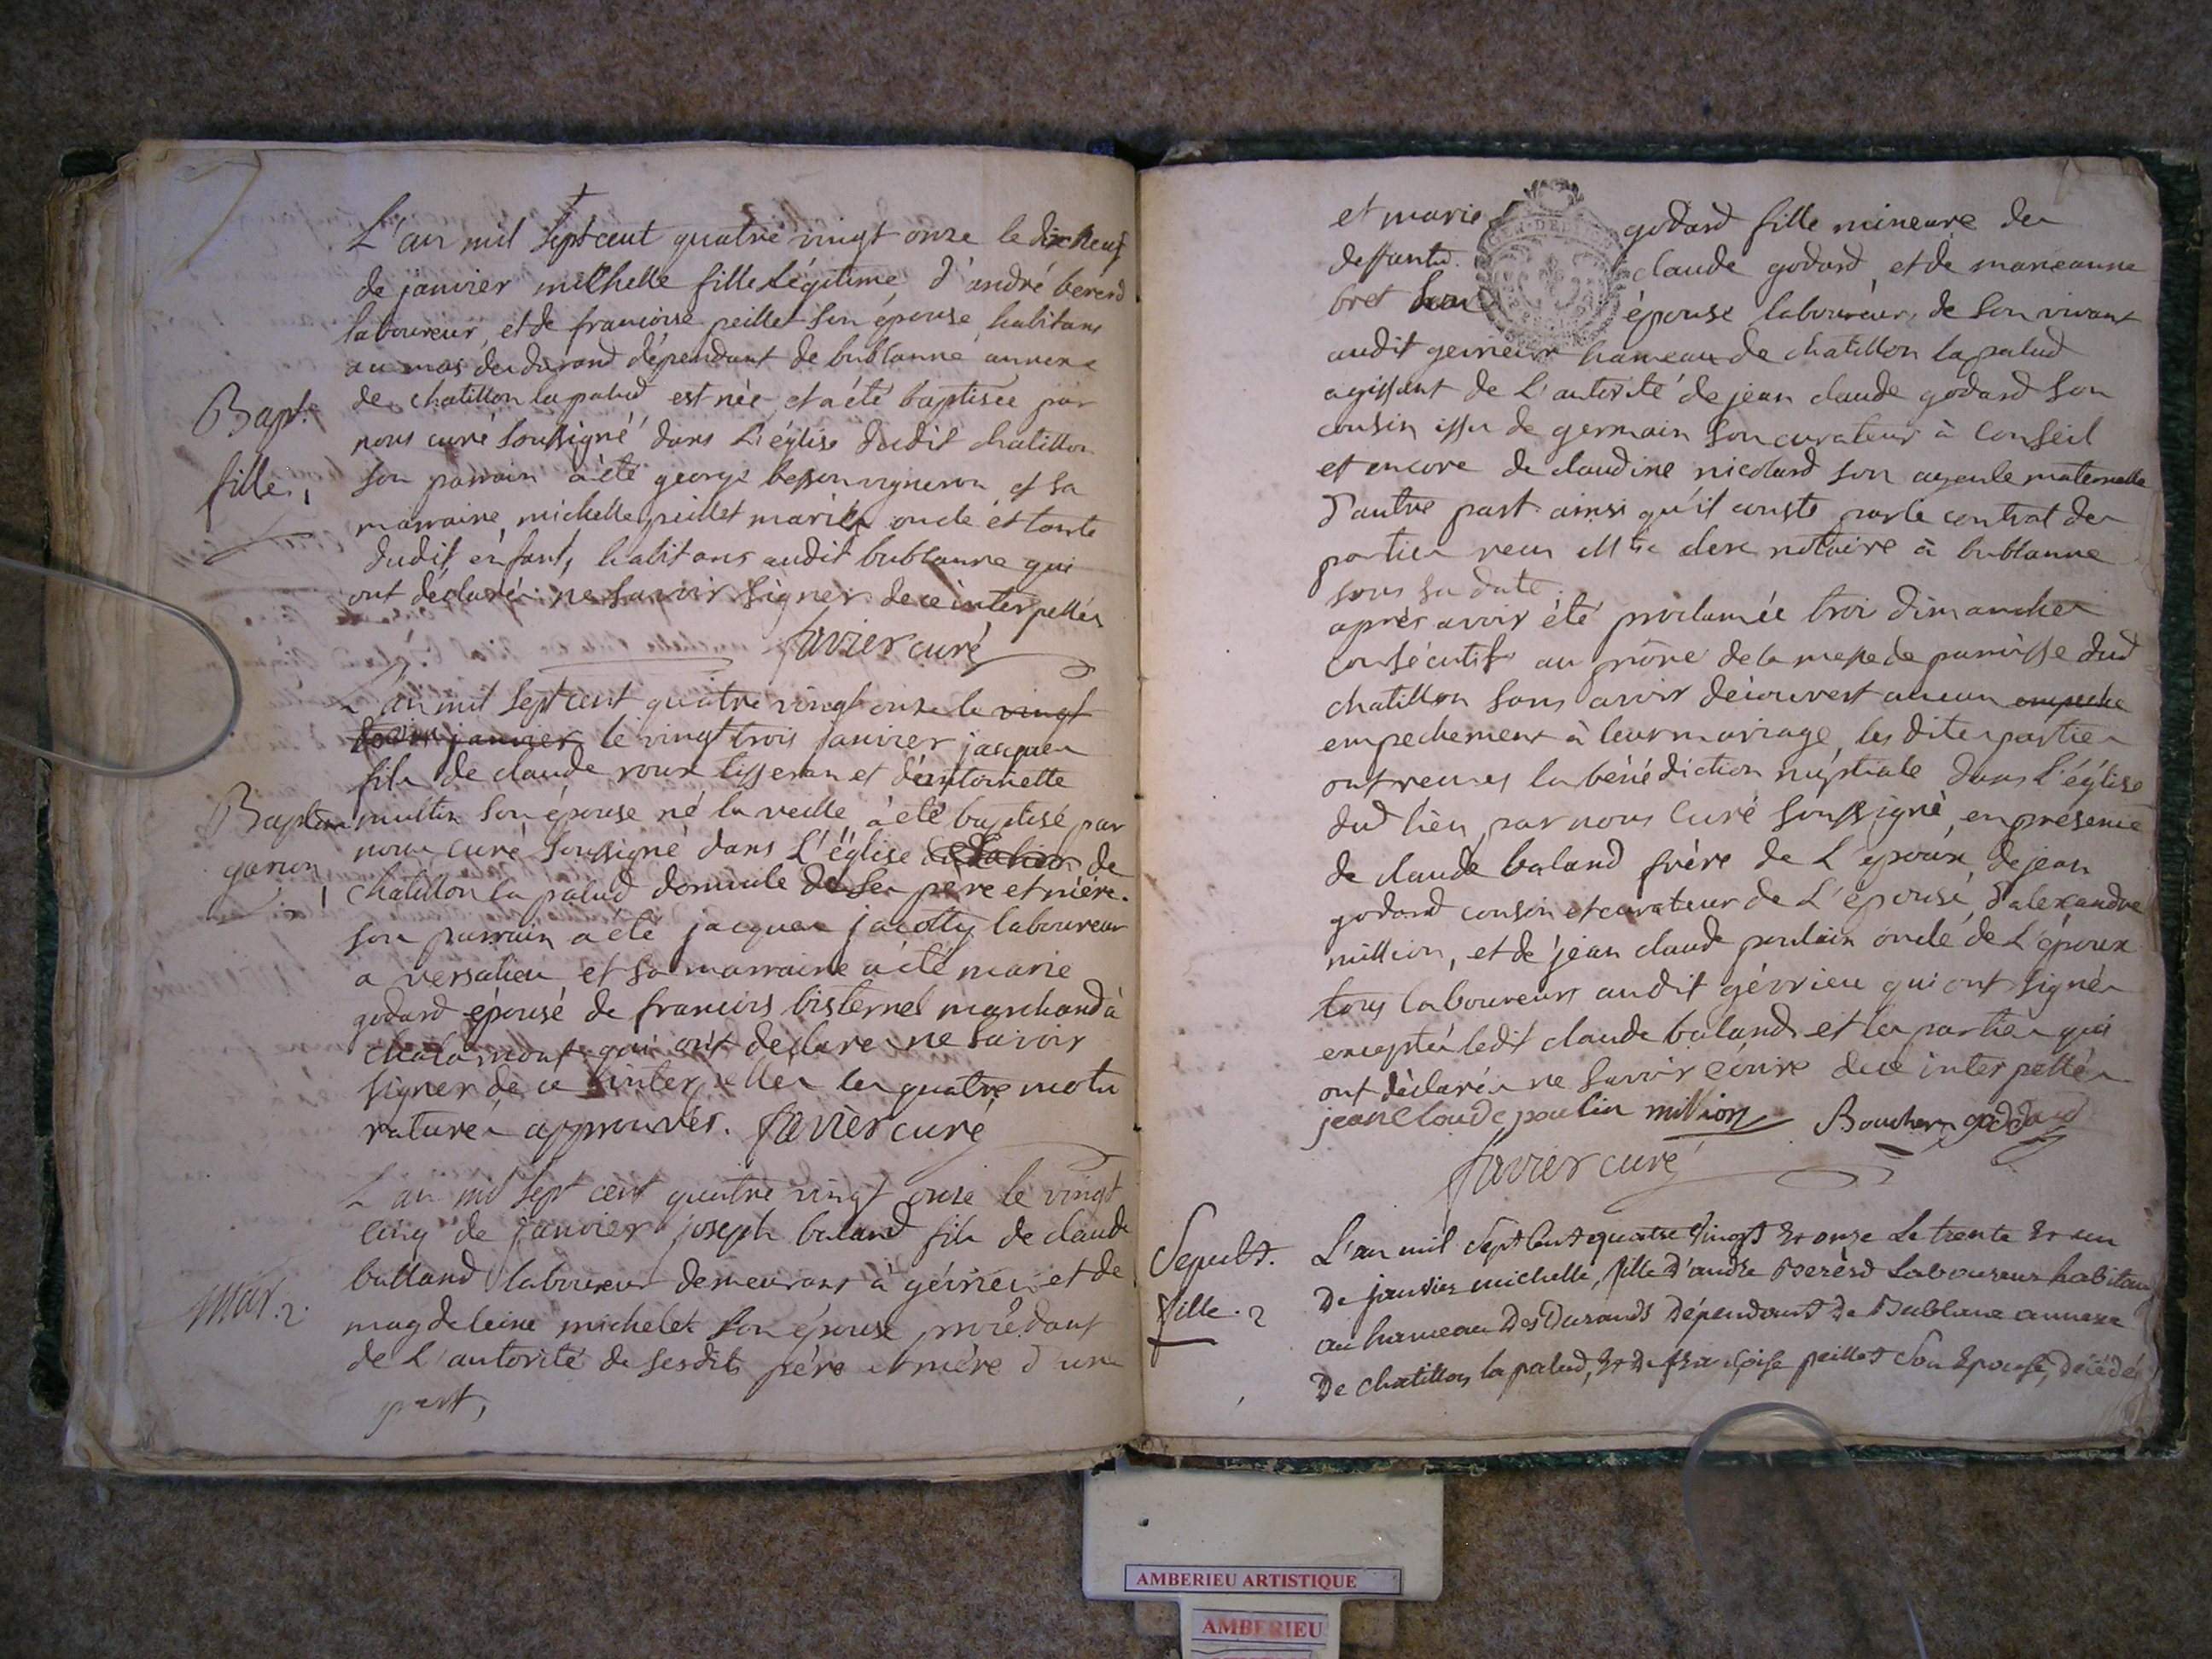 L'an mil sept cent quatre vingt onze le dixneuf
de janvier michelle fille légitime d'andré bererd
laboureur, et de francoise peillet son épouse habitans
au mas des durand dépendant de bublanne annexe
Bapt. de chatillon la palud est née et a été baptisée par
nous curé soussigné dans l'église dudit chatillon
fille, son parrain a été george besson vigneron et sa
marraine michelle peillet mariés oncle et tante
dudit enfant, habitans audit bublanne qui
ont déclarés ne savoir signer de ce interpellés
favier curé
L'an mil sept cent quatre vingt onze le vingt
trois janvier le vingt trois janvier jacques
fils de claude roux tisseran et d'antoinette
Baptême son épouse né la veille a été baptisé par
nous curé soussigné dans l'église de
garçon chatillon la palud domicile de ses père et mère.
son parrain a été jacques jacotty laboureur
a versalieu et sa marraine a été marie
godard épouse de francois bisternel marchand à
chalamont qui ont déclarés ne savoir
signer de ce interpellés les quatre mots
raturés approuvés. favier curé
L'an mil sept cent quatre vingt onze le vingt
cinq de janvier joseph baland fils de claude
balland laboureur demeurans à gévrieu et de
mar. magdeleine michelet son épouse procédant
de l'autorité de sesdits père et mère d'une
part,
et marie godard fille mineure de
deffunts claude godard et de marieanne
bret son épouse laboureur de son vivant
audit gevrieux hameau de chatillon la palud
agissant de l'autorité de jean claude godard son
cousin issu de germain son curateur à conseil
et encore de claudine nicolard son ayeule maternelle
d'autre part ainsi qu'il conste par le contrat des
parties recu notaire à bublanne
sous sa date.
après avoir été proclamés trois dimanches
consécutifs au prône de la messe de paroisse dud
chatillon sans avoir découvert aucun empeche
empechement à leur mariage, les dites parties
ont reçues la bénédiction nuptiale dans l'église
dud lieu par nous curé soussigné, en présence
de claude baland frère de l'époux, de jean
godard cousin et curateur de l'épouse, d'alexandre
million, et de jean claude poulain oncle de l'époux
tous laboureurs audit gévrieu qui ont signés
exceptés ledit claude baland et les parties qui
ont déclarés ne savoir écrire de ce interpellés
jean Claude poulin million Bouchern goddard
favier curé
Sepult. L'an mil sept cent quatre vingt et onze le trente et un
de janvier michelle, fille d'andré Bererd laboureur habitant
fille. au hameau des Durands dépendant de Bublane annexe
de chatillon la palud, et de françoise peillet son épouse, décédée
AMBERIEU ARTISTIQUE
AMBERIEU